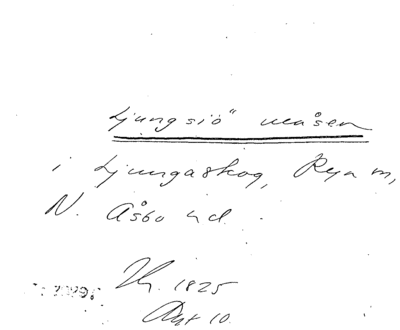 Ljungsiö" måsen
i Ljungaskog, Rya m,
N. Åsbo hd.
1825
10.